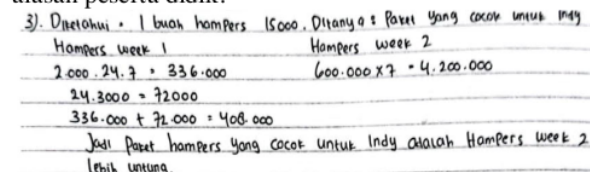 alasan peserta didik.
3). Diketahui • 1 buah hampers 15000. Ditanya : Paket yang cocok untuk Indy
Hampers week 1 Hampers week 2
2.000 . 24 . 7 = 336.000 600.000 x 7 = 4.200.000
24.3000 = 72000
336.000 + 72.000 = 408.000
Jadi Paket hampers yang cocok untuk Indy adalah Hampers week 2
lebih untung